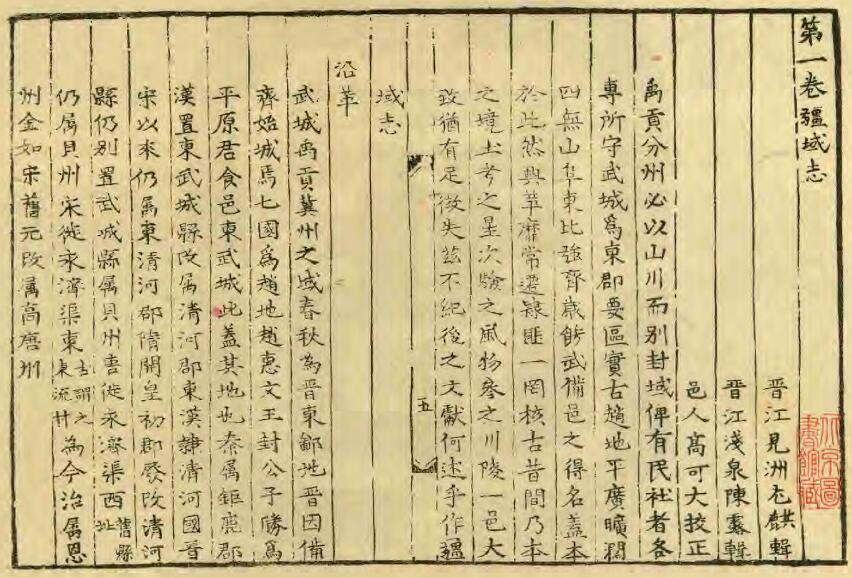 第一卷疆域志
晋江見洲尤麒輯
晋江淺泉陳露輯
邑人髙可大挍正
禹貢分州必以山川而别封域俾有民社者各
專所守武城爲東郡要區實古趙地平廣曠濶
四無山阜東北強齊歲飭武備邑之得名盖本
於此然興革靡常遷隸匪一罔核古昔間乃本
之境土考之星次驗之風物叅之川陵一邑大
致猶有足徴失兹不紀後之文獻何述乎作疆
域志
五
沿革
武城禹貢冀州之域春秋為晋東鄙地晋因備
齊始城焉七國爲趙地趙惠文王封公子勝爲
平原君食邑東武城此蓋其地也秦属鉅鹿郡
漢置東武城縣改属清河郡東漢隷清河國晋
宋以來仍属東清河郡隋開皇初郡廢改清河
縣仍别置武城縣属貝州唐徙永濟渠西舊縣址
仍属貝州宋徙永濟渠東古謂之東流廿為今治属恩
州金如宋舊元改属高唐州